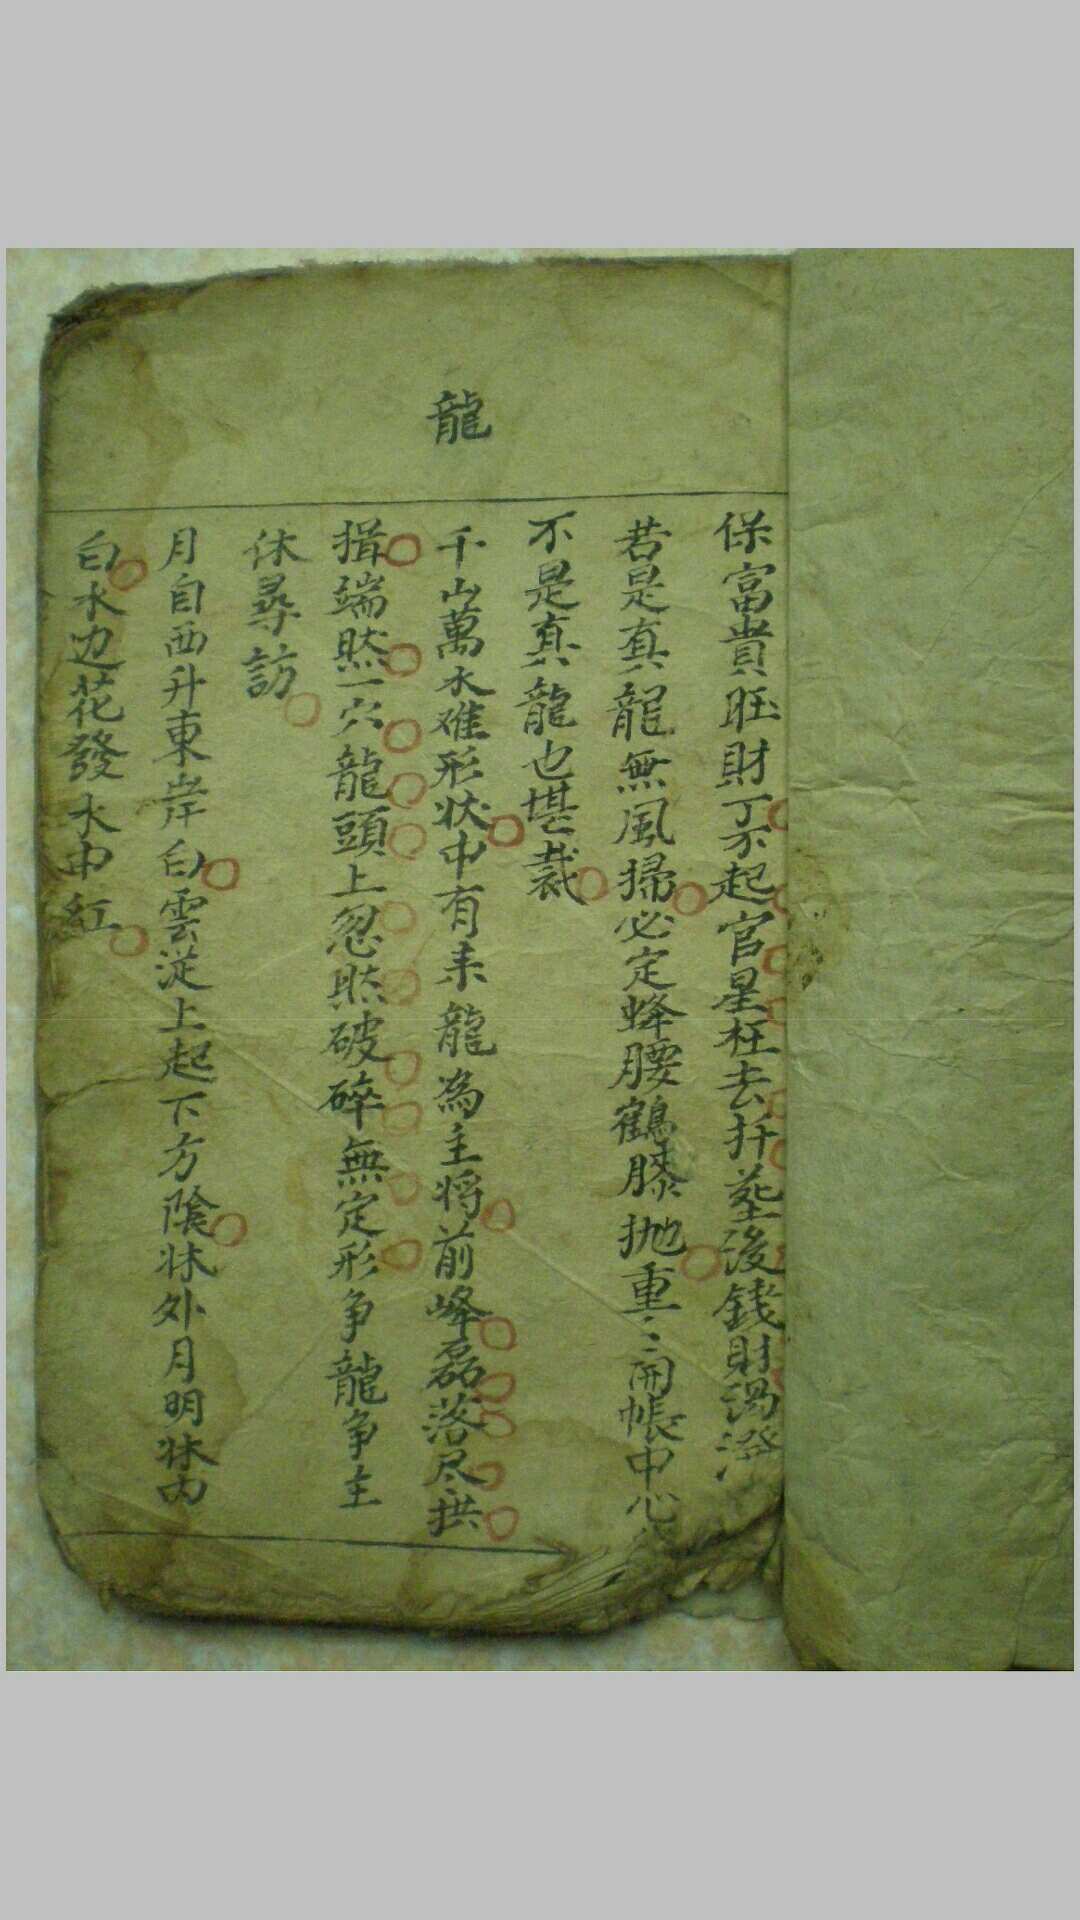 龍
保富貴旺財丁不起官星枉去扦塟後錢財潟潑
若是真龍無風掃必定蜂腰鶴膝抛重〻開帳中心
不是真龍也堪裁
千山萬水难形状中有来龍為主将前峰磊落尽拱
揖端然一穴龍頭上忽然破碎無定形争龍争主
休尋訪
月自西升東岸白雲從上起下方陰牀外月明牀内
白水边花發水中紅